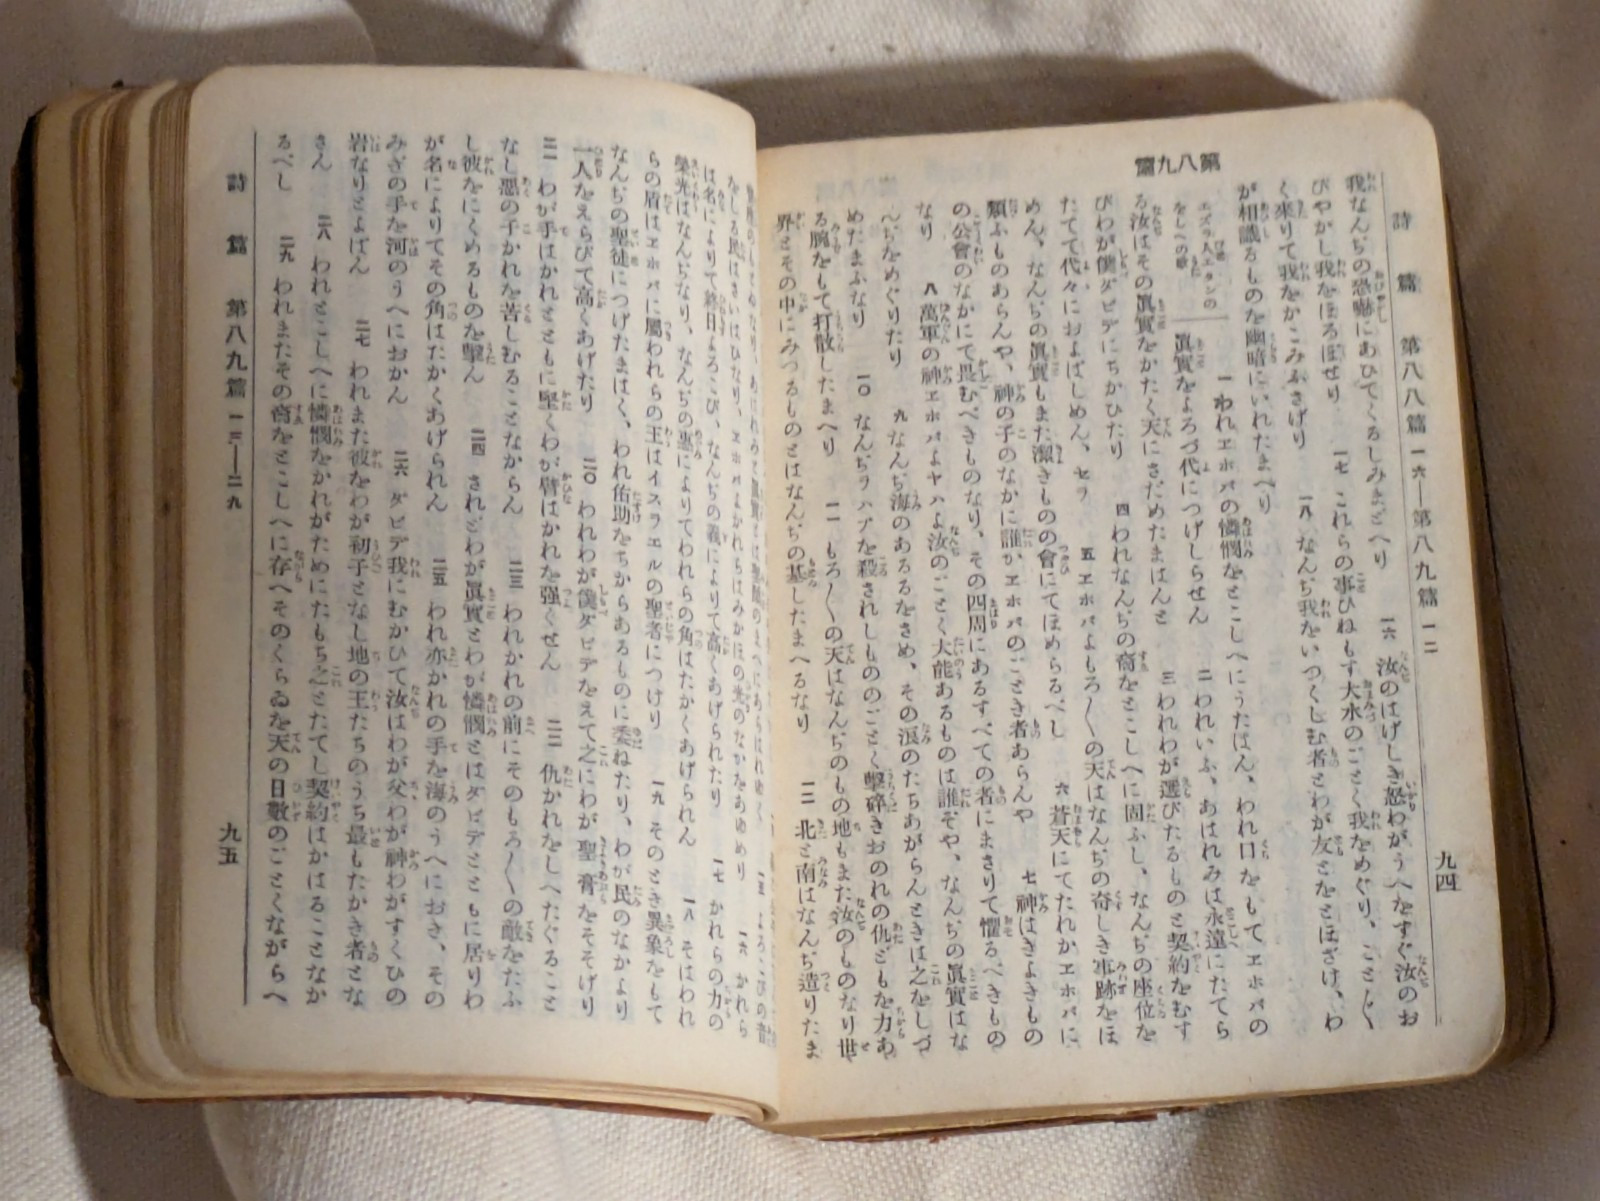 詩篇 第八八篇 一六―第八九篇 一二
九四
一六 汝のはげしき怒わがうへをすぐ汝のお
我なんぢの恐嚇にあひてくるしみまどへり 一七 これらの事ひねもす大水のごとく我をめぐり、ことごと
びやかし我をほろぼせり
く來りて我をかこみふさげり 一八 なんぢ我をいつくしむ者とわが友とをとほざけ、わ
が相識るものを幽暗にいれたまへり
第八九篇
エズラ人エタンの
をしへの歌
一 われヱホバの憐憫をとこしへにうたはん、われ口をもてヱホバの
眞實をよろづ代につげしらせん 二 われいふ、あはれみは永遠にたてら
る汝はその眞實をかたく天にさだめたまはんと 三 われわが選びたるものと契約をむす
びわが僕ダビデにちかひたり 四 われなんぢの裔をとこしへに固ふし、なんぢの座位を
たてて代々におよばしめん、セラ 五 ヱホバよもろ〱の天はなんぢの奇しき事跡をほ
めん、なんぢの眞實もまた潔きものの會にてほめらるべし 六 蒼天にてたれかヱホバに
類ふものあらんや、神の子のなかに誰かヱホバのごとき者あらんや 七 神はきよきもの
の公會のなかにて畏むべきものなり、その四周にあるすべての者にまさりて懼るべきもの
なり 八 萬軍の神ヱホバよヤハよ汝のごとく大能あるものは誰ぞや、なんぢの眞實はな
んぢをめぐりたり 九 なんぢ海のあるるをさめ、その浪のたちあがらんときは之をしづ
めたまふなり 一〇 なんぢラハブを殺されしもののごとく擊碎きおのれの仇どもを力あ
る腕をもて打散したまへり 一一 もろ〱の天はなんぢのもの地もまた汝のものなり世
界とその中にみつるものとはなんぢの基したまへるなり 一二 北と南はなんぢ造りたま
一五 よろこびの音
をしる民はさいはひなり、ヱホバよかれらはみかほの光のなかをあゆめり 一六 かれら
は名によりて終日よろこび、なんぢの義によりて高くあげられたり 一七 かれらの力の
榮光はなんぢなり、なんぢの惠によりてわれらの角はたかくあげられん 一八 そはわれ
らの盾はヱホバに屬われらの王はイスラエルの聖者につけり 一九 そのとき異象をもて
なんぢの聖徒につげたまはく、われ佑助をちからあるものに委ねたり、わが民のなかより
一人をえらびて高くあげたり 二〇 われわが僕ダビデをえて之にわが聖膏をそそげり
二一 わが手はかれとともに堅くわが臂はかれを强くせん 二二 仇かれをしへたぐること
なし惡の子かれを苦しむることなからん 二三 われかれの前にそのもろ〱の敵をたふ
し彼をにくめるものを擊ん 二四 されどわが眞實とわが憐憫とはダビデとともに居りわ
が名によりてその角はたかくあげられん 二五 われ亦かれの手を海のうへにおき、その
みぎの手を河のうへにおかん 二六 ダビデ我にむかひて汝はわが父わが神わがすくひの
岩なりとよばん 二七 われまた彼をわが初子となし地の王たちのうち最もたかき者とな
さん 二八 われとこしへに憐憫をかれがためにたもち之とたてし契約はかはることなか
るべし 二九 われまたその裔をとこしへに存へそのくらゐを天の日數のごとくながらへ
詩篇 第八九篇 一三―二九
九五